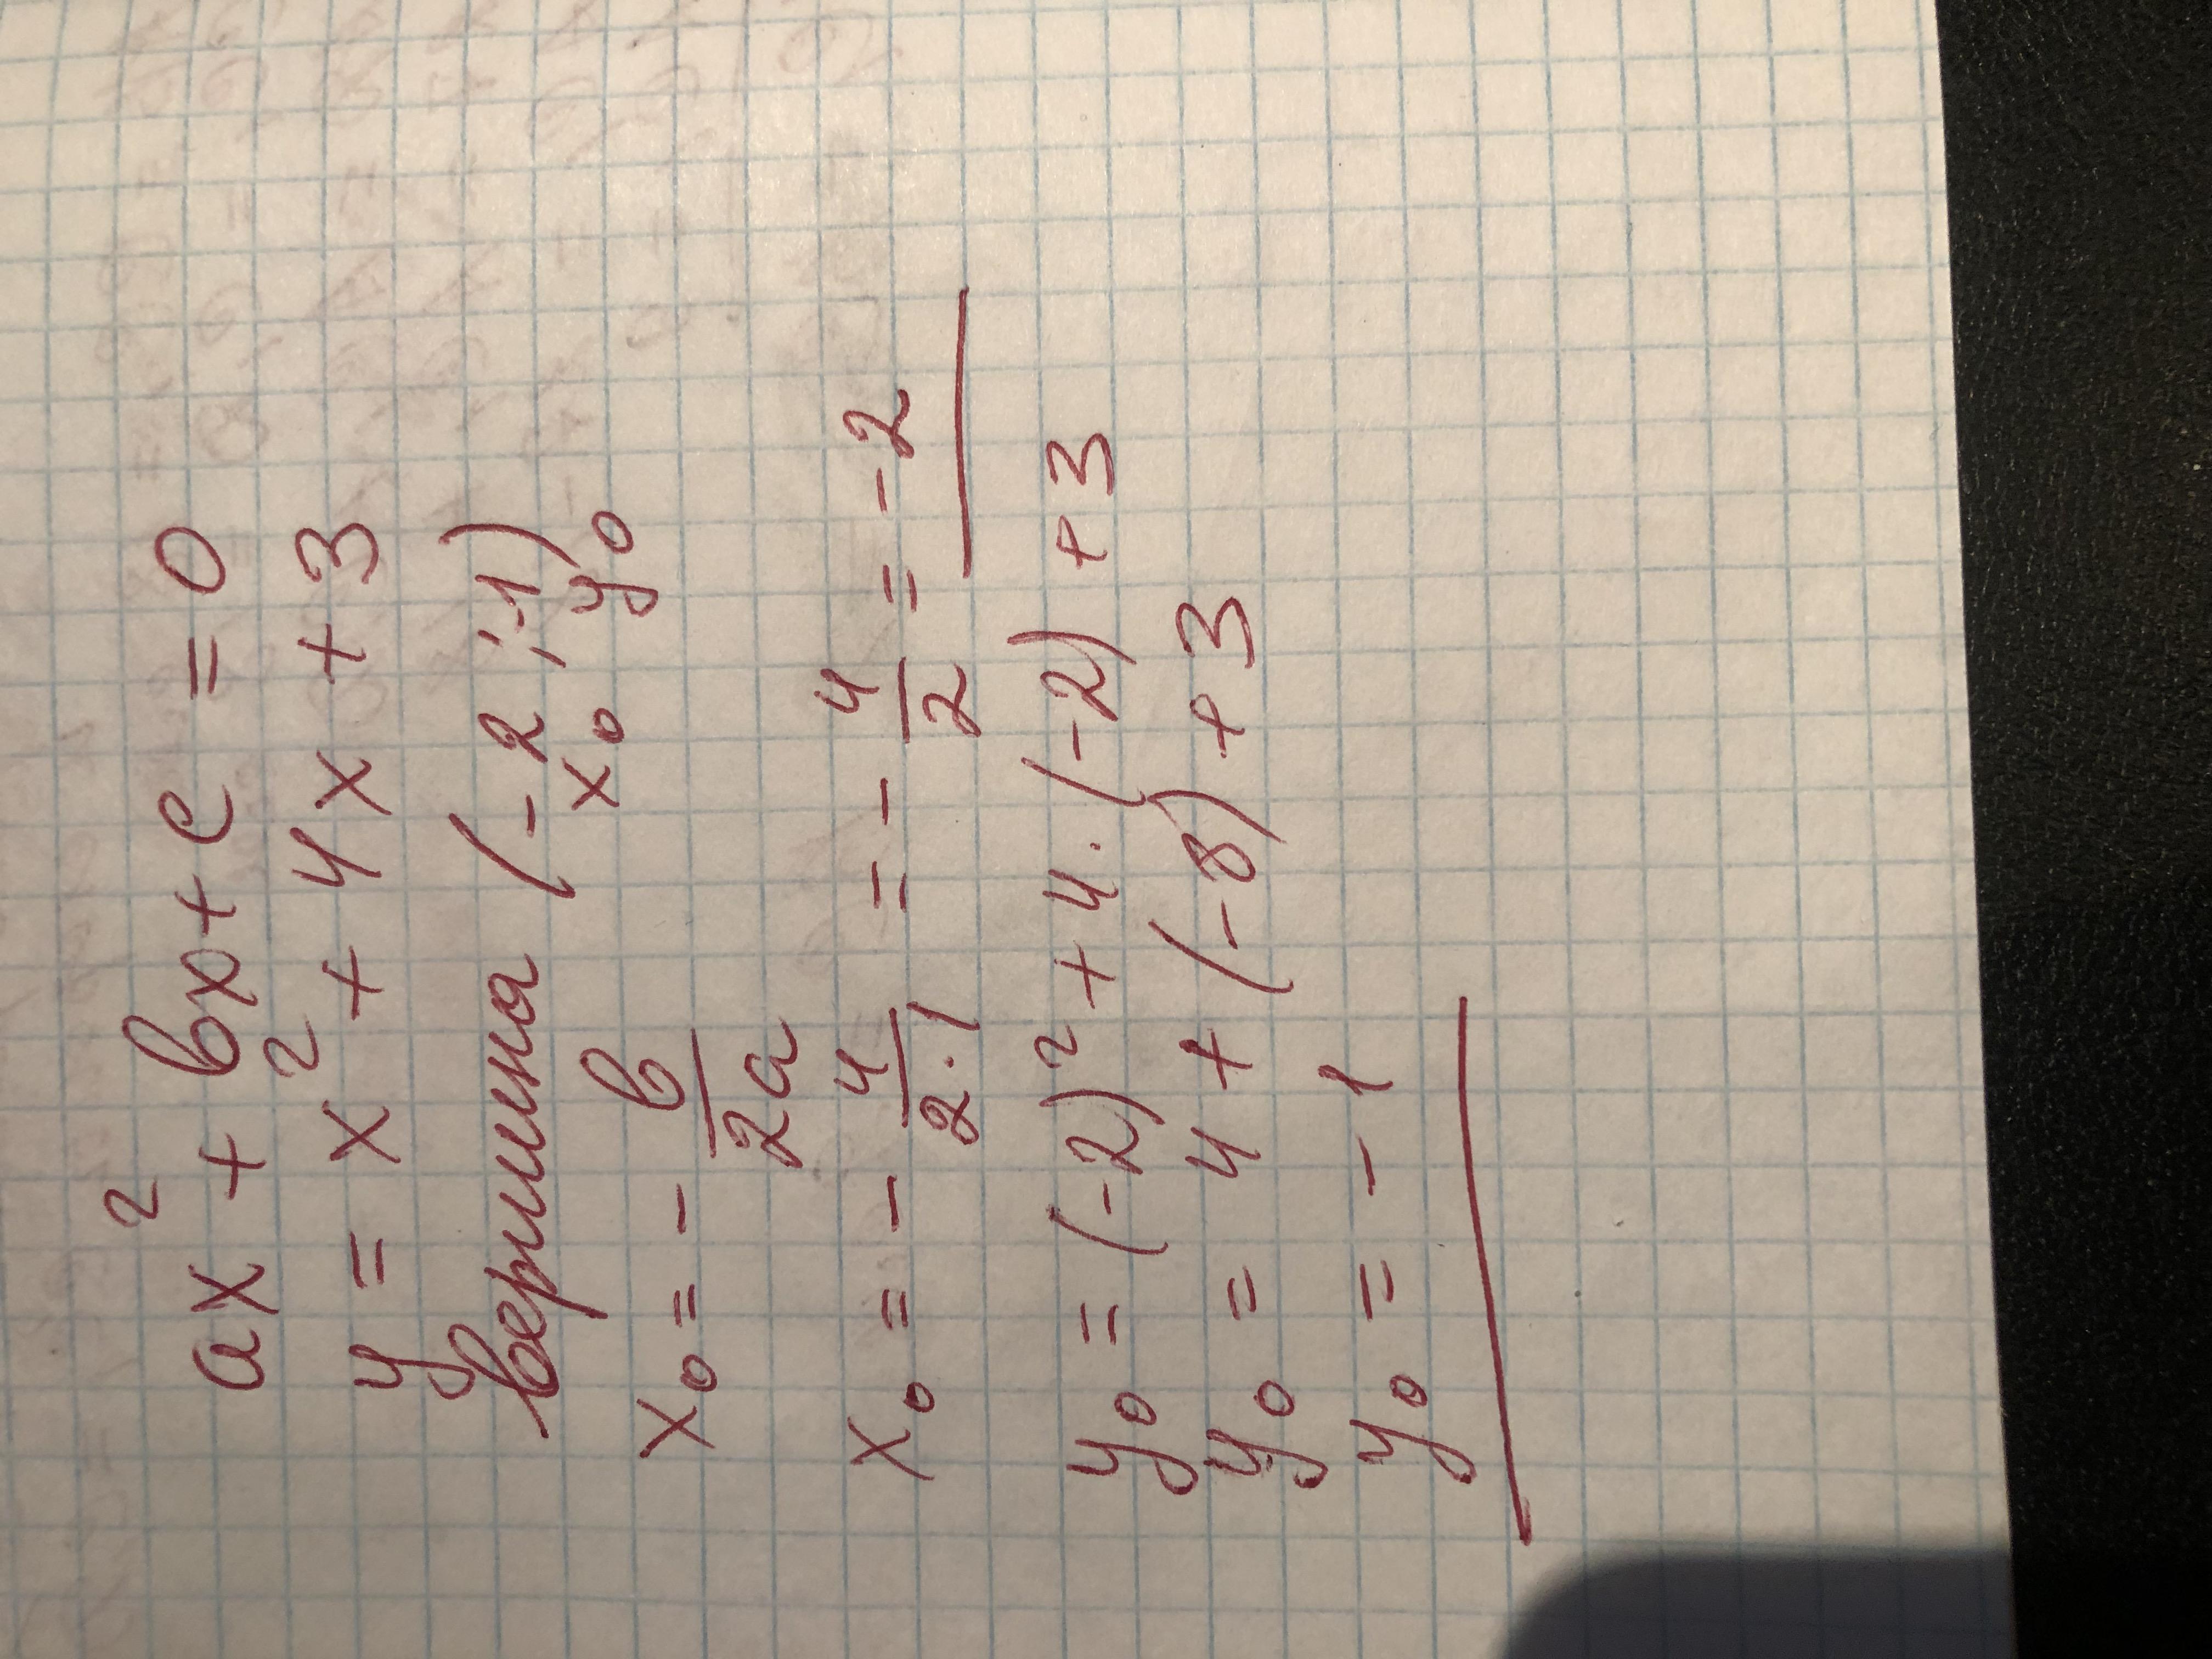 ax² + bx + c = 0
y = x² + 4x + 3
вершина (-2 ; -1)
x₀ y₀
x₀ = - b/2a
x₀ = - 4/2·1 = - 4/2 = -2
y₀ = (-2)² + 4·(-2) + 3
y₀ = 4 + (-8) + 3
y₀ = -1